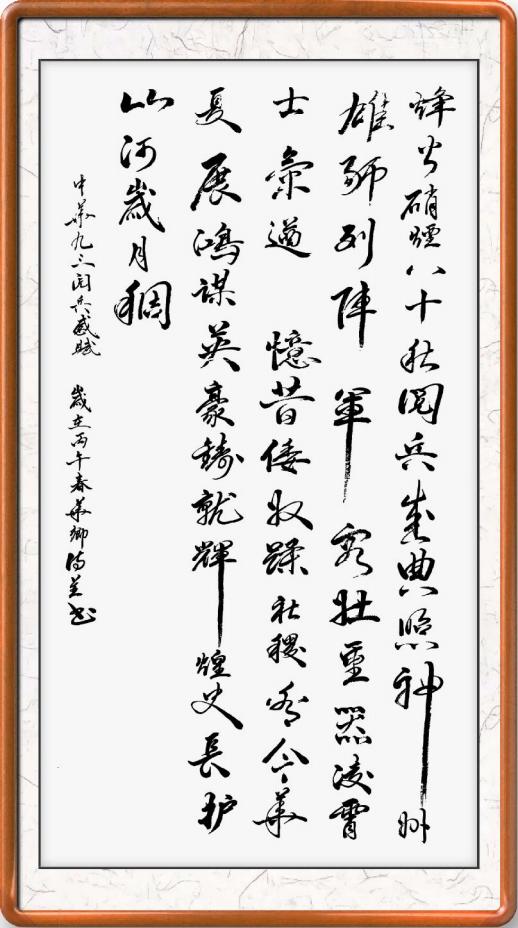 烽火硝烟八十秋阅兵盛典照神州
雄师列阵军容壮重器凌霄
士气遒 忆昔倭奴蹂社稷看今华
夏展鸿谋英豪铸就辉煌史长护
山河岁月稠
中华九三阅兵感赋 岁在丙午春华乡